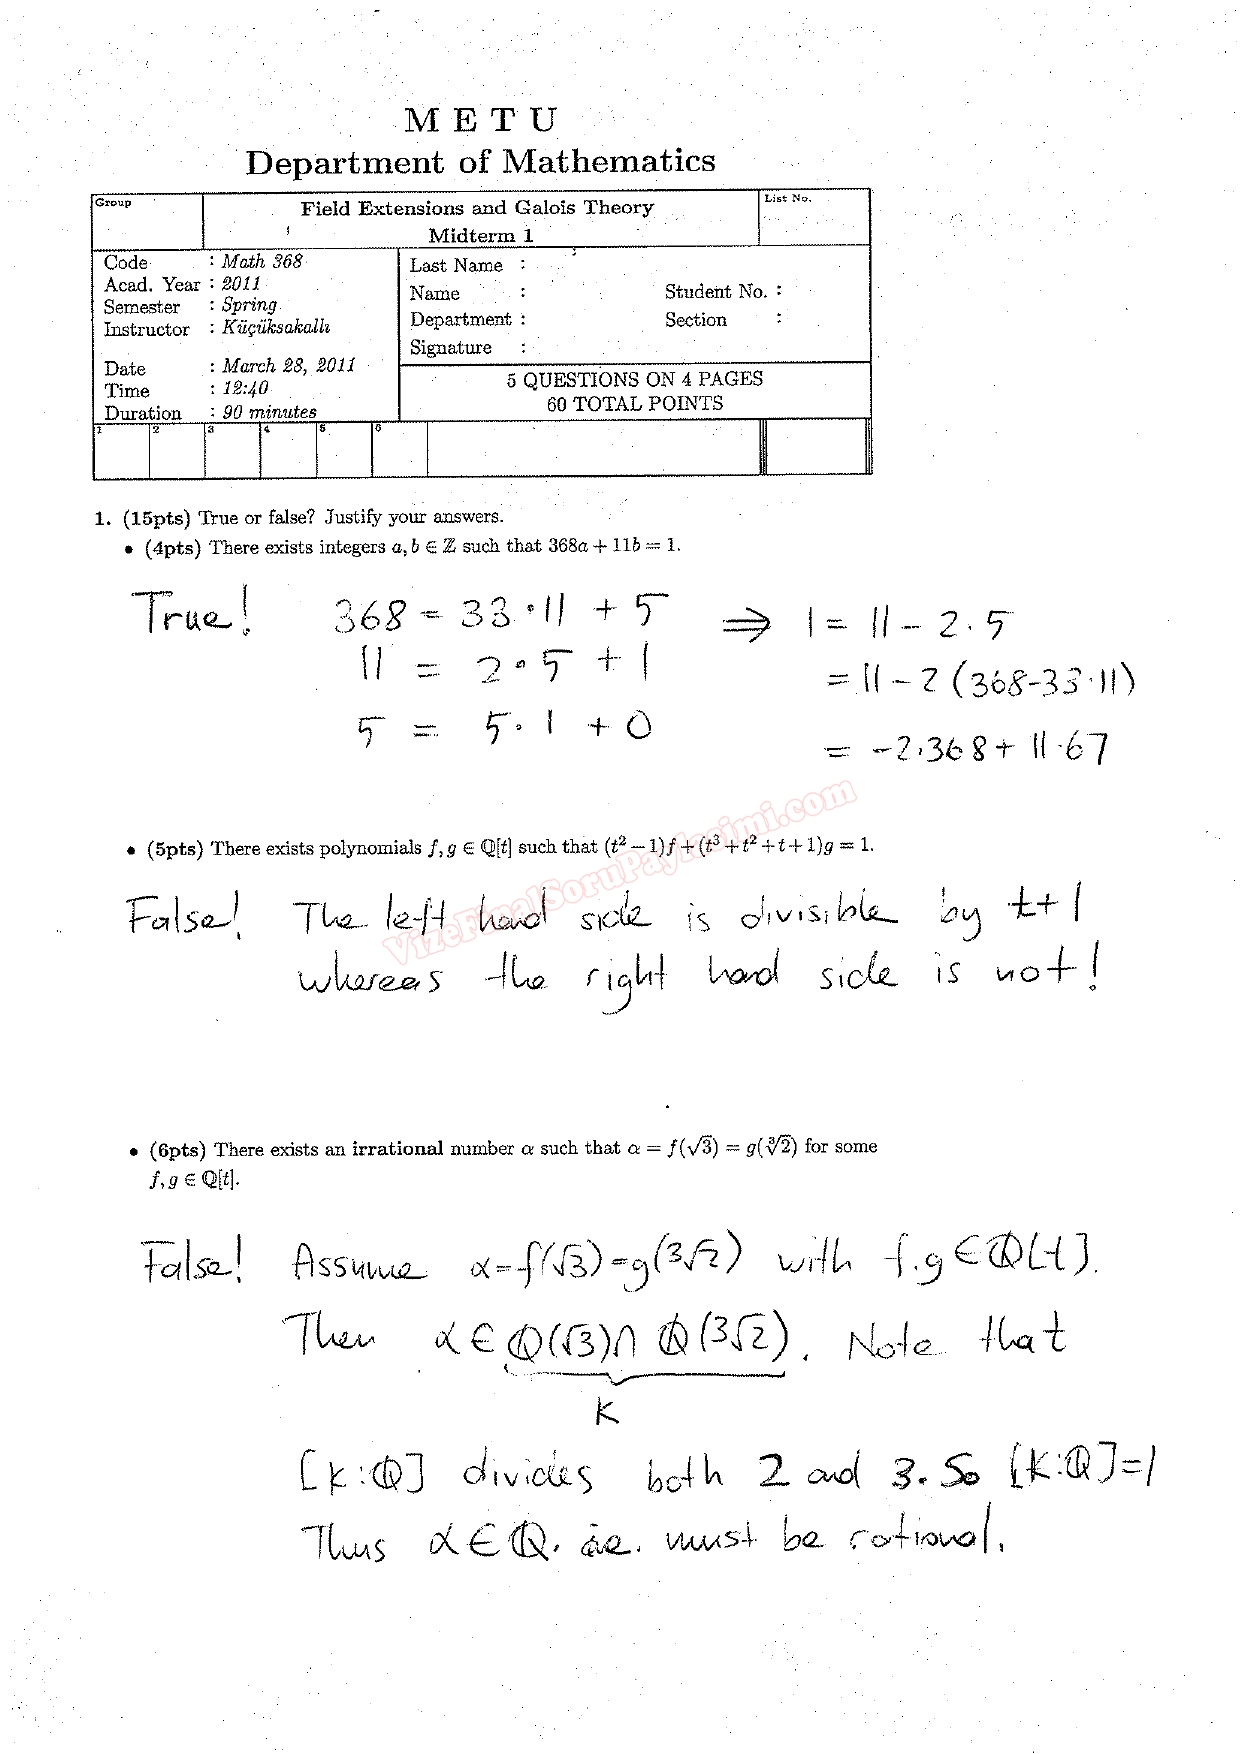 M E T U
Department of Mathematics
Group
Field Extensions and Galois Theory
Midterm 1
List No.
Code : Math 368
Acad. Year : 2011
Semester : Spring
Instructor : Küçüksakallı
Date : March 28, 2011
Time : 12:40
Duration : 90 minutes
Last Name :
Name :
Department :
Signature :
Student No. :
Section :
5 QUESTIONS ON 4 PAGES
60 TOTAL POINTS
1 2 3 4 5 6
1. (15pts) True or false? Justify your answers.
• (4pts) There exists integers a, b ∈ ℤ such that 368a + 11b = 1.
True! 368 = 33·11 + 5 ⇒ 1 = 11 - 2·5
11 = 2·5 + 1 = 11 - 2(368-33·11)
5 = 5·1 + 0 = -2·368 + 11·67
• (5pts) There exists polynomials f, g ∈ ℚ[t] such that (t² − 1)f + (t³ + t² + t + 1)g = 1.
VizeFinalSoruPaylasimi.com
False! The left hand side is divisible by t+1
whereas the right hand side is not!
• (6pts) There exists an irrational number α such that α = f(√3) = g(∛2) for some
f, g ∈ ℚ[t].
False! Assume α = f(√3) = g(3√2) with f,g ∈ ℚ[t].
Then α ∈ ℚ(√3) ∩ ℚ(3√2). Note that
K
[K:ℚ] divides both 2 and 3. So [K:ℚ]=1
Thus α ∈ ℚ. i.e. must be rational.